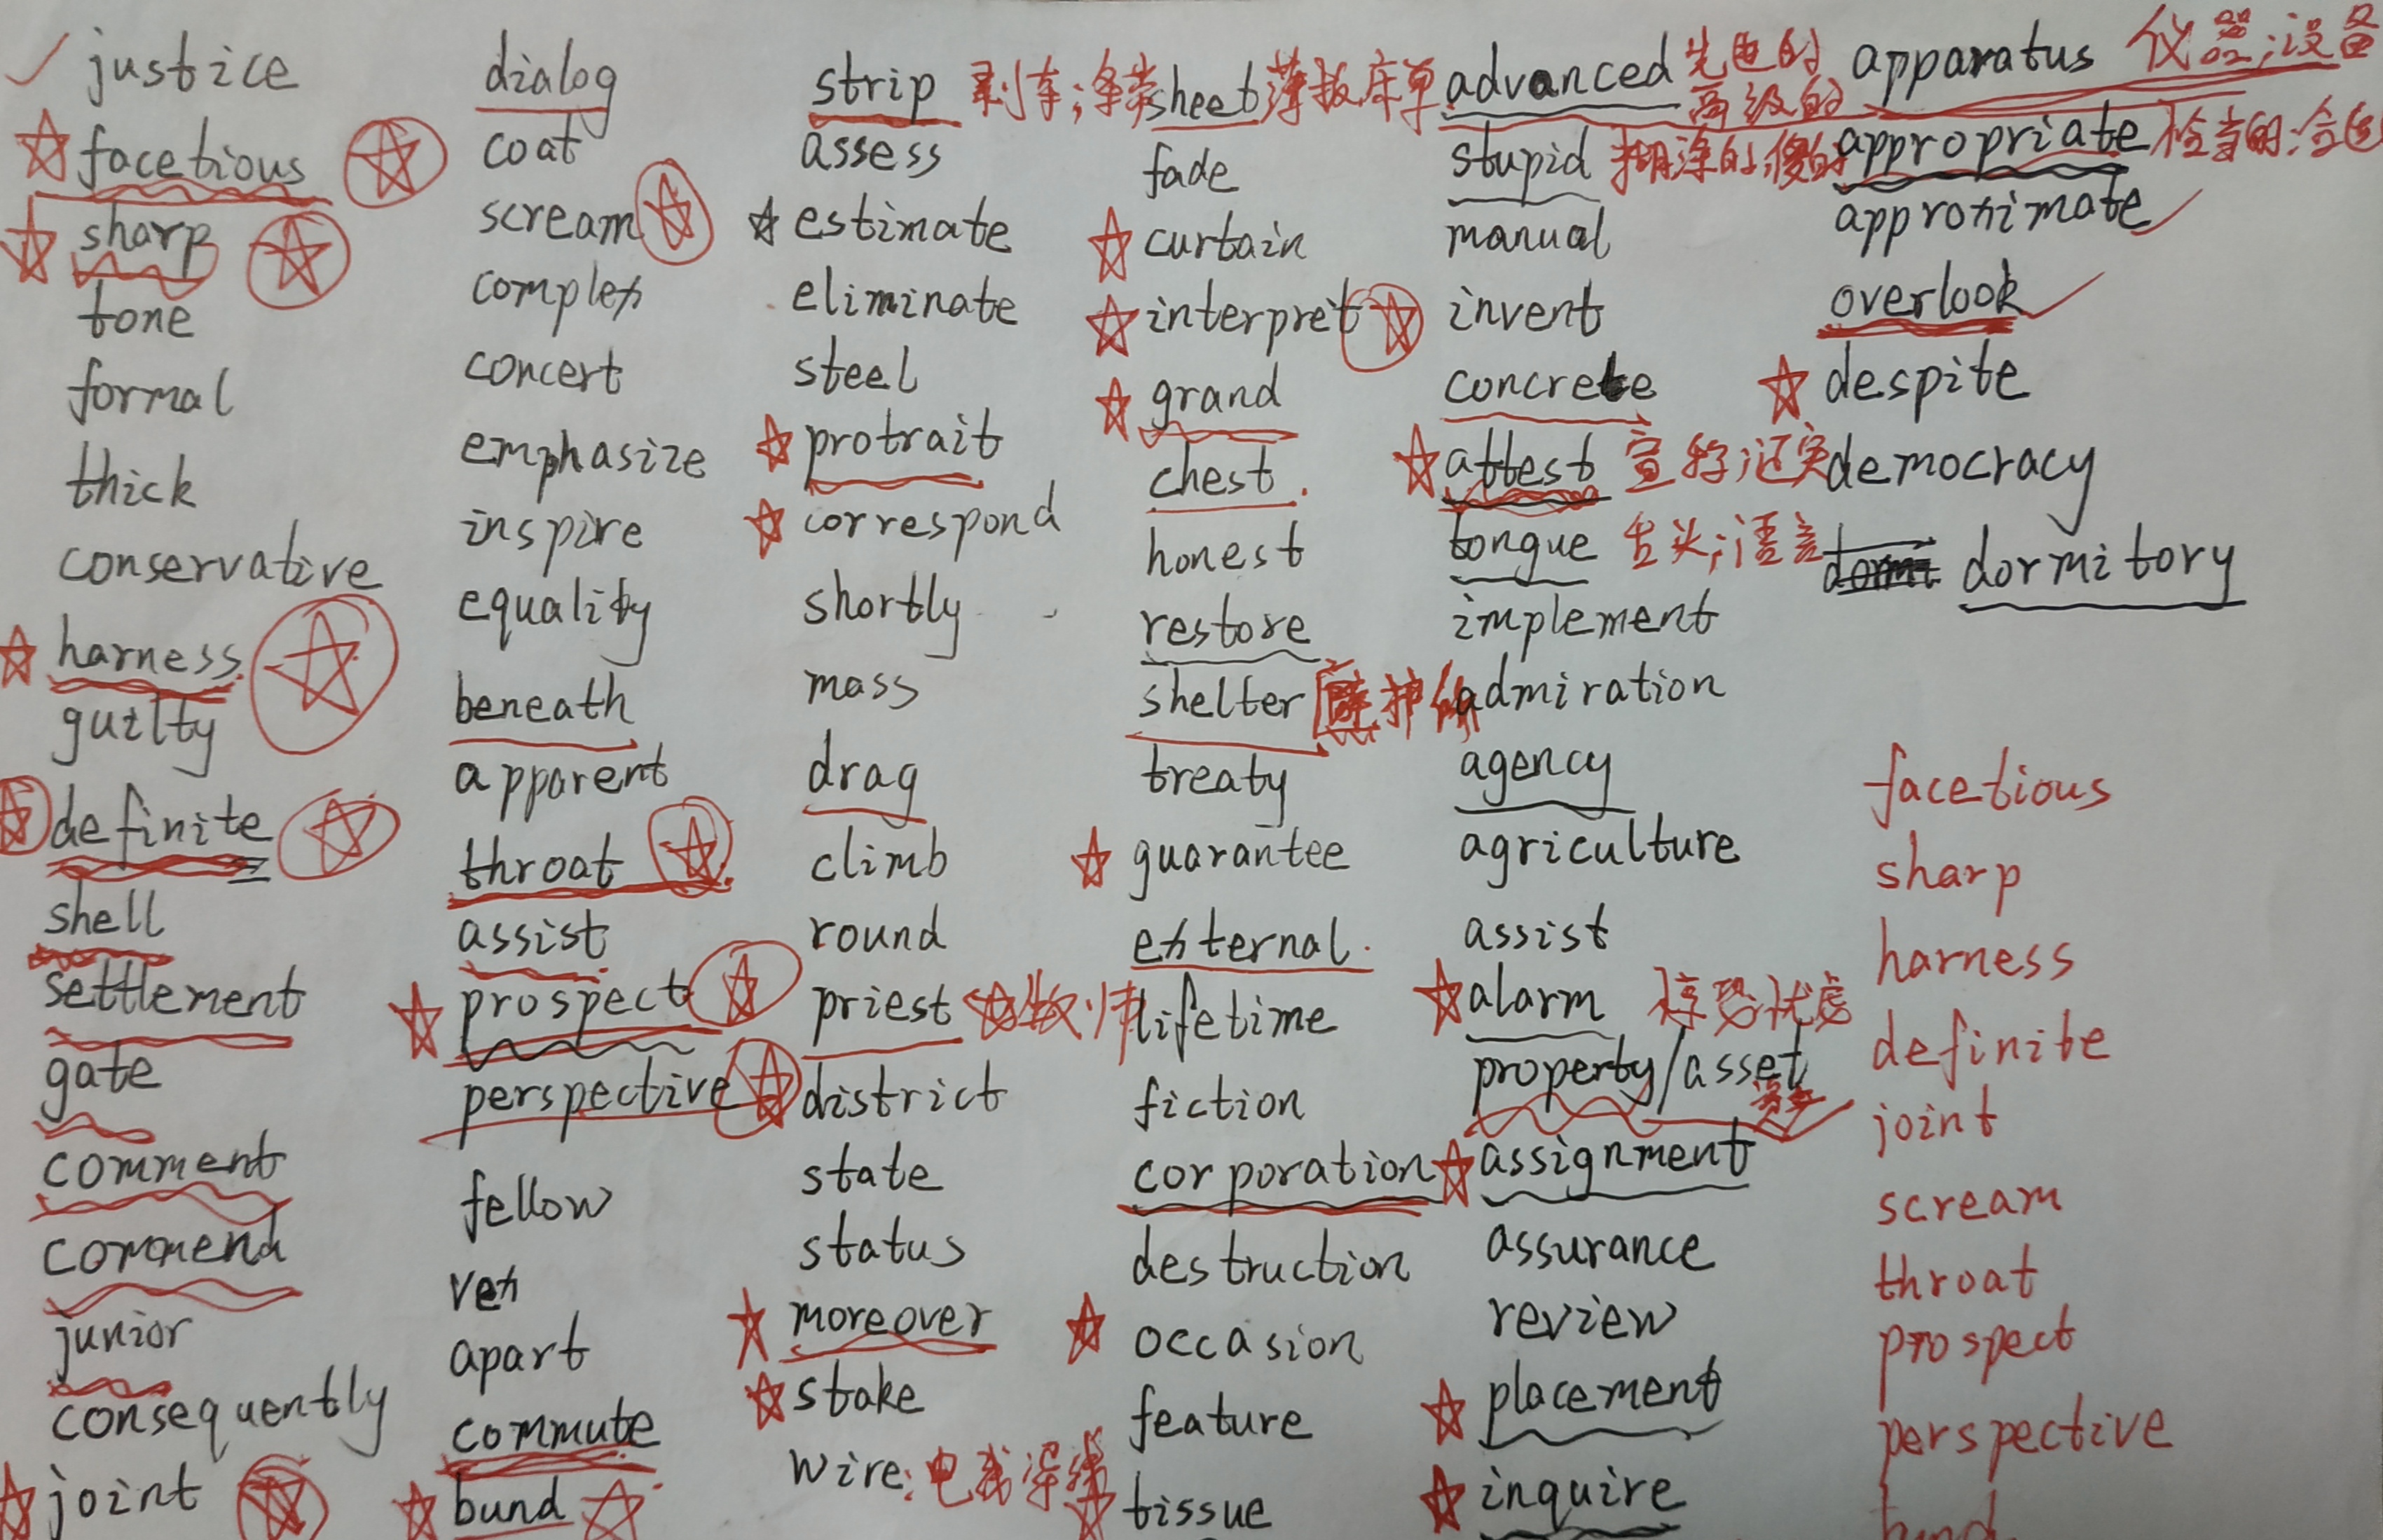 justice
facetious
sharp
tone
formal
thick
conservative
harness
guilty
definite
shell
settlement
gate
comment
commend
junior
consequently
joint
dialog
coat
scream
complex
concert
emphasize
inspire
equality
beneath
apparent
throat
assist
prospect
perspective
fellow
vex
apart
commute
bund
strip
assess
estimate
eliminate
steel
protrait
correspond
shortly
mass
drag
climb
round
priest 牧师
district
state
status
moreover
stake
wire: 电线
sheet 薄板床单
fade
curtain
interpret
grand
chest
honest
restore
shelter 护
treaty
guarantee
external
lifetime
fiction
corporation
destruction
occasion
feature
tissue
advanced 先进的
高级的
stupid 糊涂的 傻的
manual
invent
concrete
attest 证实
tongue 舌头;语言
implement
admiration
agency
agriculture
assist
alarm 惊恐忧虑
property/asset
assignment
assurance
review
placement
inquire
apparatus 仪器;设备
appropriate 恰当的;合适
approximate
overlook
despite
democracy
dormitory
facetious
sharp
harness
definite
joint
scream
throat
prospect
perspective
bund